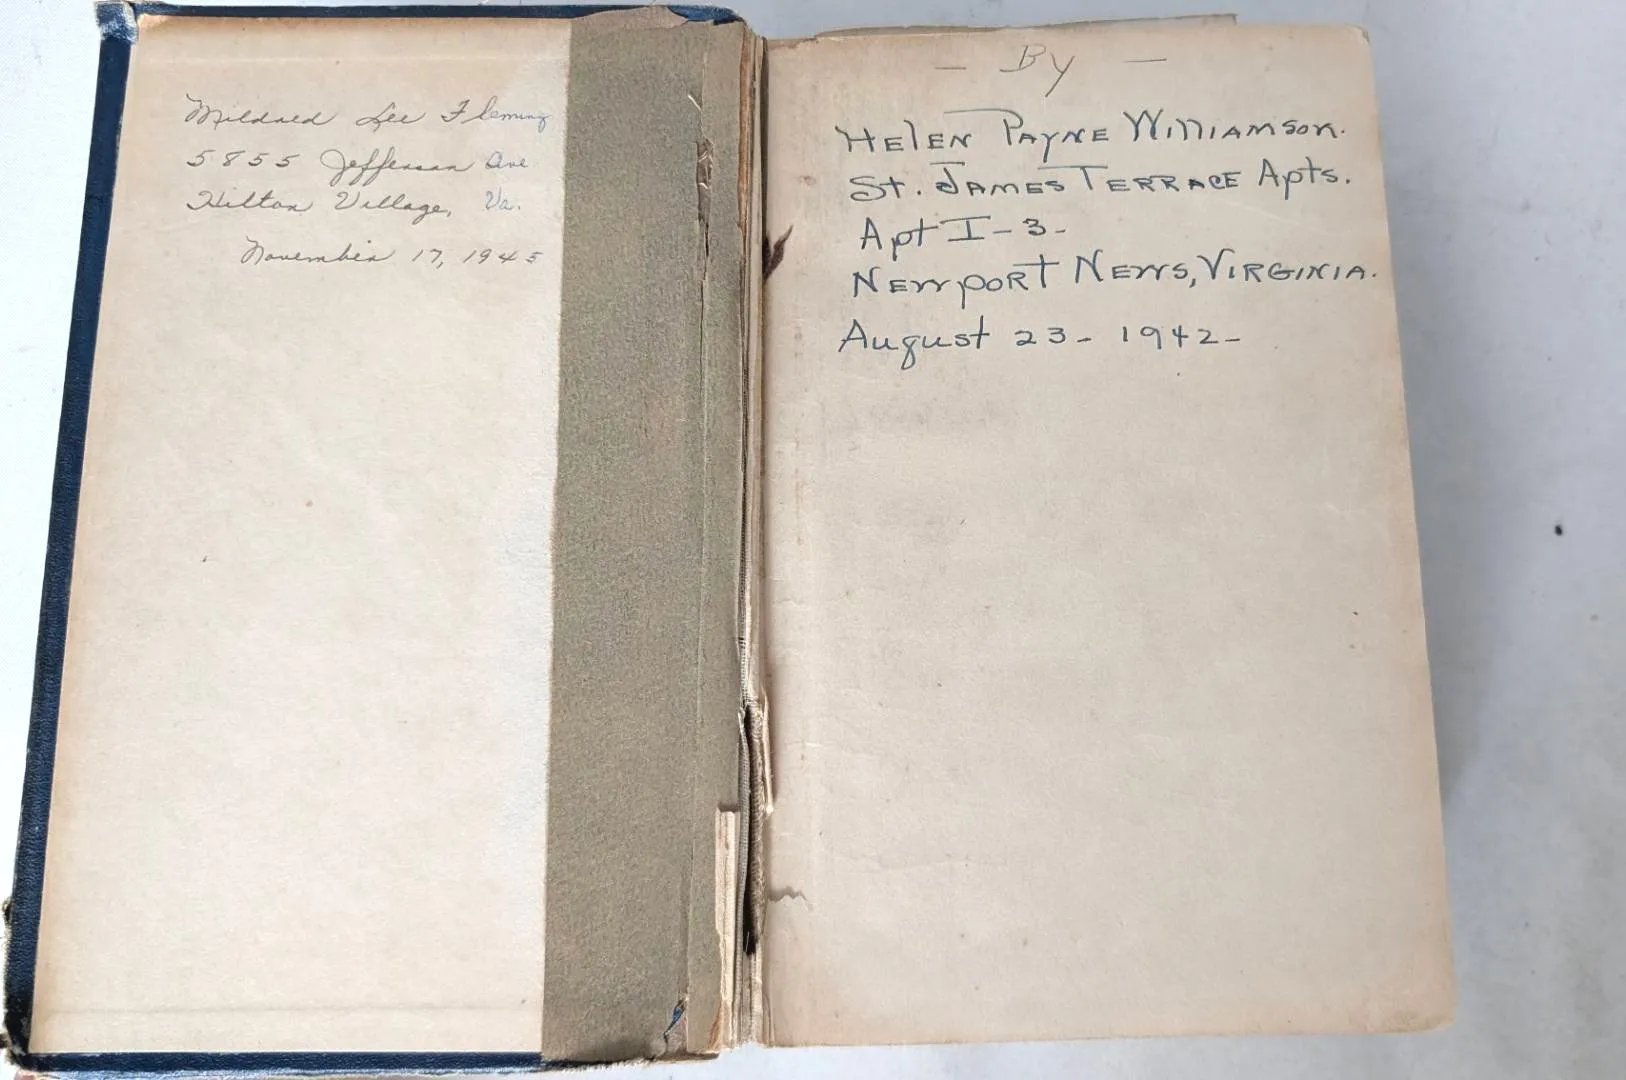 Mildred Lee Fleming
5855 Jefferson Ave
Hilton Village, Va.
November 17, 1945
— By —
HElEN PAYNE WilliAMSON.
St. JAMES TERRACE Apts.
Apt I-3-
NEWpORT NEWS, VIRGINIA.
August 23- 1942-